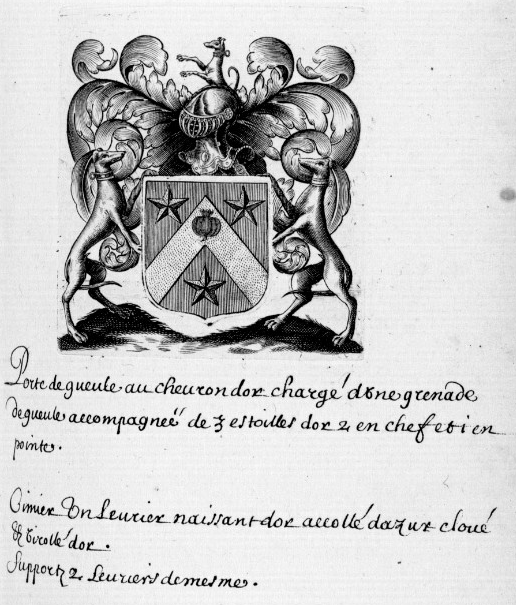 Porte de gueule au cheuron dor chargé dune grenade
de gueule accompagneé de 3 estoilles dor 2 en chef et 1 en
pointe.
Cimier Vn Leurier naissant dor accollé dazur cloué
& virollé dor.
Supportz 2 Leuriers de mesme.